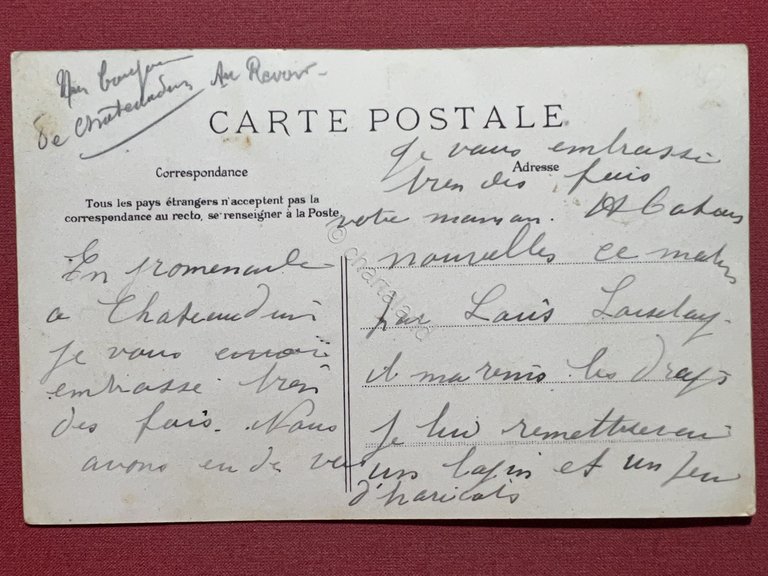 Un bonjour
de Châteaudun
Au Revoir
CARTE POSTALE
Correspondance
Adresse
Tous les pays étrangers n'acceptent pas la
correspondance au recto, se renseigner à la Poste
En promenade
a Chateaudun
je vous envoi
embrasse bien
des fois. Nous
avons eu de vos
nouvelles ce matin
par Louis Loiselay.
il m a remis les draps
je lui remettrerai
un lapin et un peu
d'haricots
Je vous embrasse
bien des fois
votre maman.
© chartaland